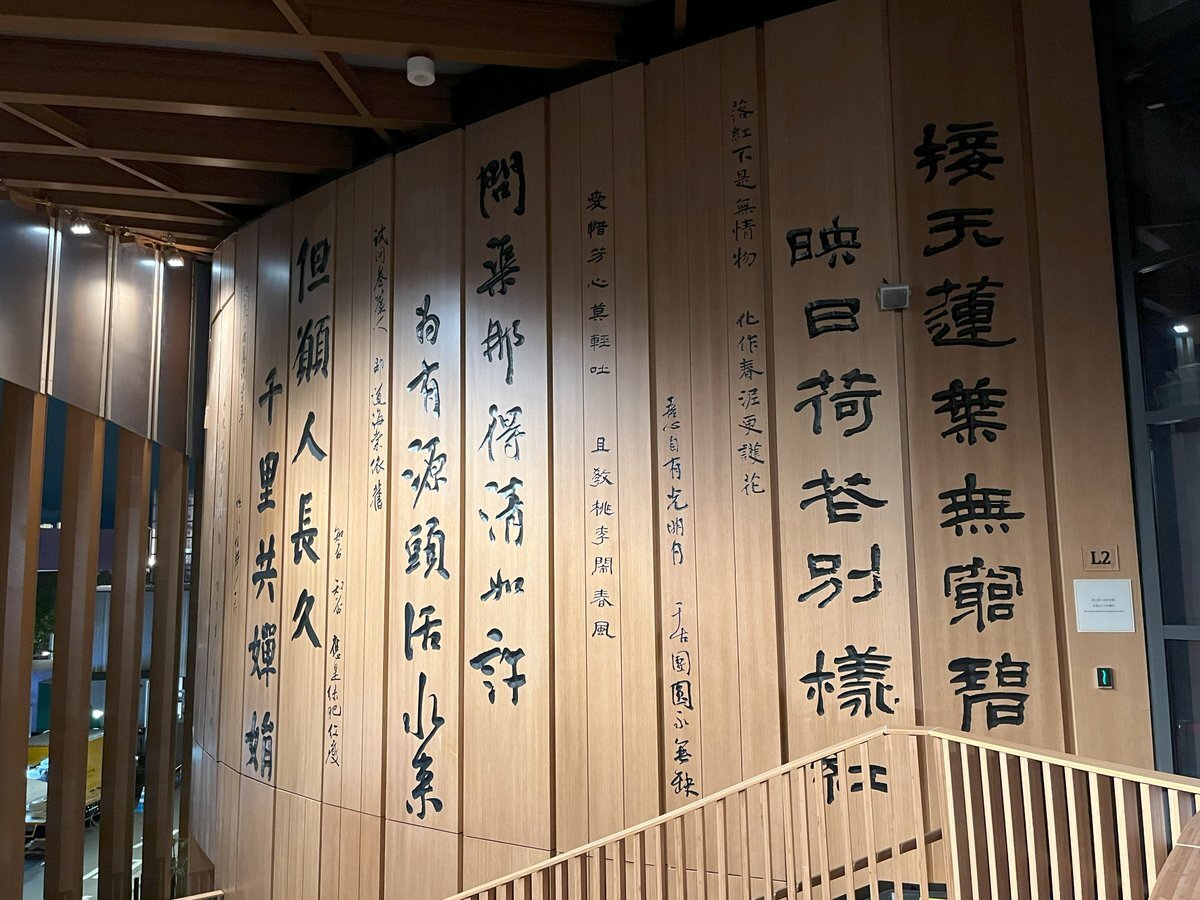 接天蓮葉無窮碧
映日荷花別樣紅
落紅不是無情物 化作春泥更護花
吾心自有光明月 千古團圓永無缺
愛惜芳心莫輕吐 且教桃李鬧春風
問渠那得清如許
為有源頭活水來
試問卷簾人 却道海棠依舊
知否 知否 應是綠肥紅瘦
但願人長久
千里共嬋娟
L2